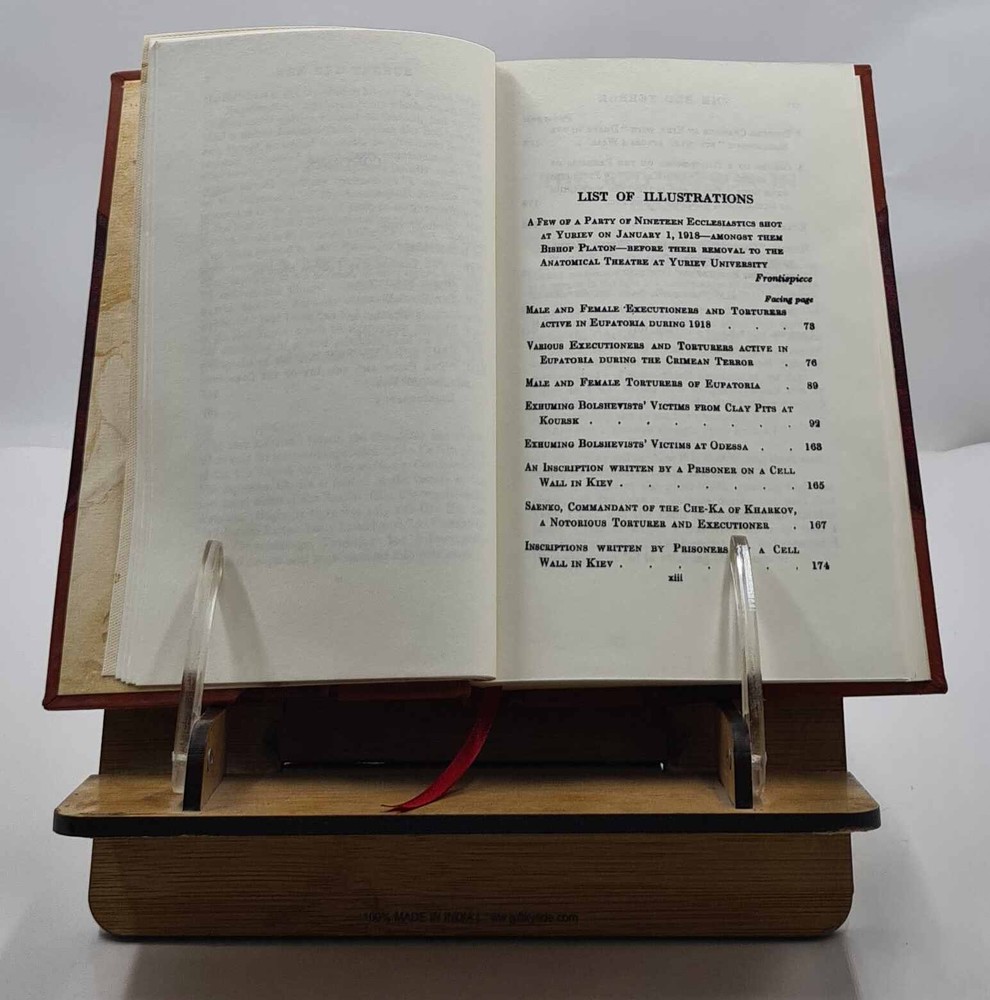 LIST OF ILLUSTRATIONS
A FEW OF A PARTY OF NINETEEN ECCLESIASTICS SHOT
AT YURIEV ON JANUARY 1, 1918—AMONGST THEM
BISHOP PLATON—BEFORE THEIR REMOVAL TO THE
ANATOMICAL THEATRE AT YURIEV UNIVERSITY
Frontispiece
Facing page
MALE AND FEMALE EXECUTIONERS AND TORTURERS
ACTIVE IN EUPATORIA DURING 1918 . . . 73
VARIOUS EXECUTIONERS AND TORTURERS ACTIVE IN
EUPATORIA DURING THE CRIMEAN TERROR . 76
MALE AND FEMALE TORTURERS OF EUPATORIA . 89
EXHUMING BOLSHEVISTS' VICTIMS FROM CLAY PITS AT
KOURSK . . . . . . . 92
EXHUMING BOLSHEVISTS' VICTIMS AT ODESSA . . 163
AN INSCRIPTION WRITTEN BY A PRISONER ON A CELL
WALL IN KIEV . . . . . . 165
SAENKO, COMMANDANT OF THE CHE-KA OF KHARKOV,
A NOTORIOUS TORTURER AND EXECUTIONER . 167
INSCRIPTIONS WRITTEN BY PRISONERS A CELL
WALL IN KIEV . . . . . . 174
xiii
100% MADE IN INDIA